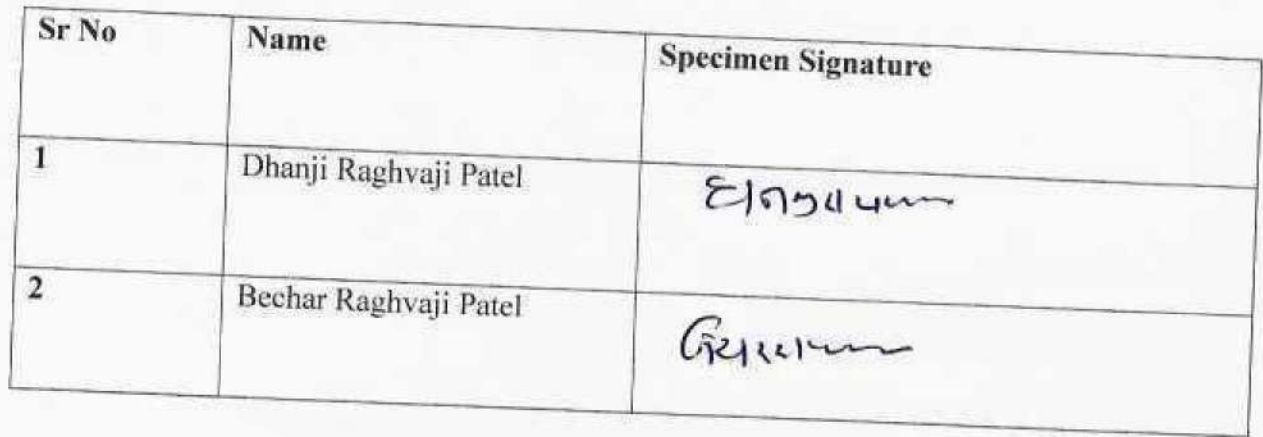 Sr No Name Specimen Signature
1 Dhanji Raghvaji Patel
2 Bechar Raghvaji Patel